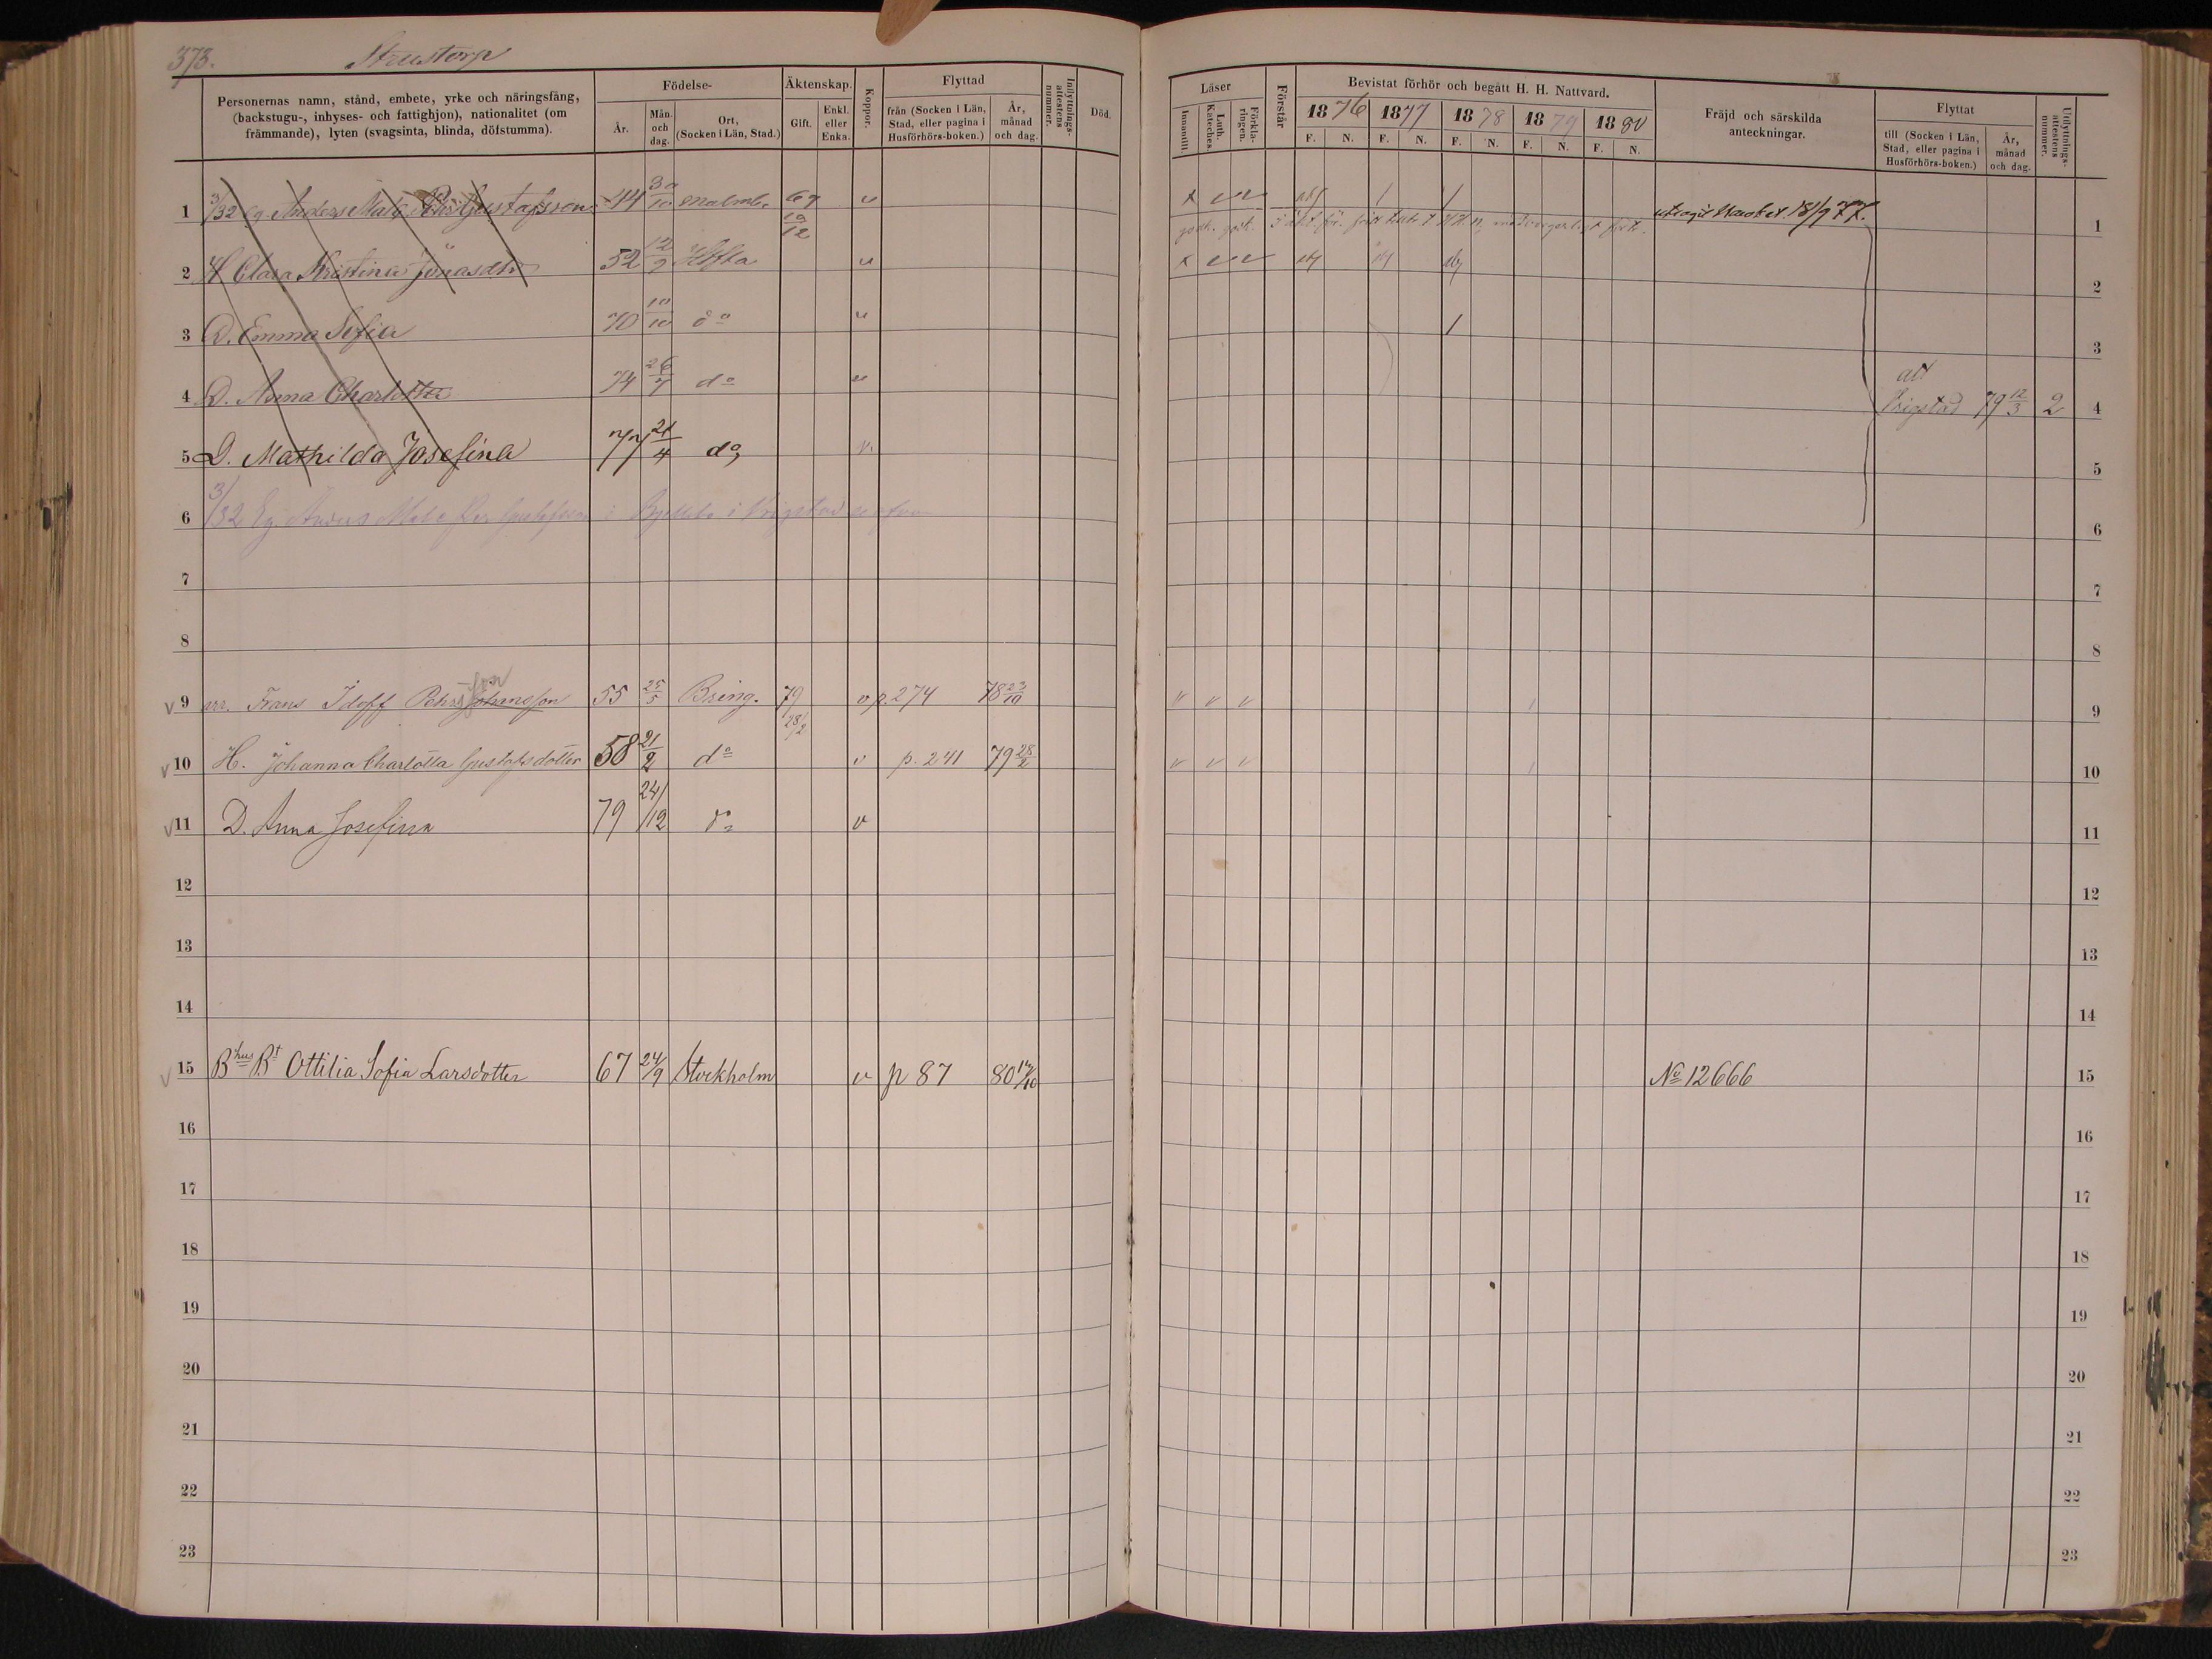 373. Strustorp
Personernas namn, stånd, embete, yrke och näringsfång, (backstugu-, inhyses- och fattighjon), nationalitet (om främmande), lyten (svagsinta, blinda, döfstumma).
Födelse-
År.
Mån. och dag.
Ort, (Socken i Län, Stad.)
Äktenskap.
Gift.
Enkl. eller Enka.
Koppor.
Flyttad
från (Socken i Län, Stad, eller pagina i Husförhörs-boken.)
År, månad och dag.
Inflyttnings-attestens nummer.
Död.
Läser
Innantill.
Luth. Kateches.
Förklaringen.
Förstår
Bevistat förhör och begått H. H. Nattvard.
1876 1877 1878 1879 1880
F. N. F. N. F. N. F. N. F. N.
Fräjd och särskilda anteckningar.
Flyttat
till (Socken i Län, Stad, eller pagina i Husförhörs-boken.)
År, månad och dag.
Utflyttnings-attestens nummer.
1 3/32 Eg. Anders Gustafsson 44 30/10 Malmb. 69 19/12 18/9 77. 1
2 H Clara Kristina Jonasdtr 52 12/9 2
3 D. Emma Sofia 70 10/10 do 3
4 D. Anna Charlotta 74 26/7 do att Vrigstad 79 12/3 2 4
5 D. Mathilda Josefina 77 21/4 do 5
6 3/32 Eg. Anders i Vrigstad 6
7 7
8 8
v 9 arr. Frans Idoff Pehrsson Johansson 55 25/5 Bring. 79 28/2 v p. 274 78 23/10 v v v 9
v 10 H. Johanna Charlotta Gustafsdotter 58 21/2 do v p. 241 79 28/2 v v v 10
v 11 D. Anna Josefina 79 24/12 do v 11
12 12
13 13
14 14
v 15 Bhus Bt Ottilia Sofia Larsdotter 67 24/9 Stockholm v p 87 80 No 12666 15
16 16
17 17
18 18
19 19
20 20
21 21
22 22
23 23